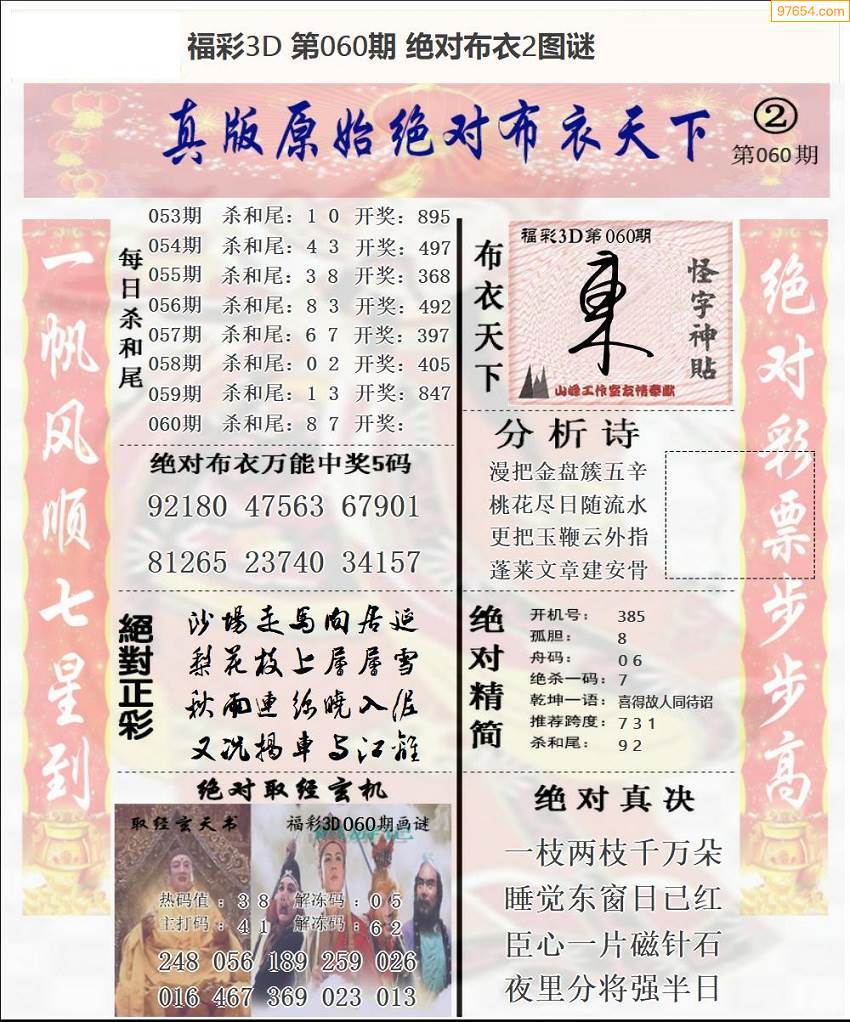 97654.com
福彩3D 第060期 绝对布衣2图谜
真版原始绝对布衣天下
②
第060期
一帆风顺七星到
每日杀和尾
053期 杀和尾：1 0 开奖：895
054期 杀和尾：4 3 开奖：497
055期 杀和尾：3 8 开奖：368
056期 杀和尾：8 3 开奖：492
057期 杀和尾：6 7 开奖：397
058期 杀和尾：0 2 开奖：405
059期 杀和尾：1 3 开奖：847
060期 杀和尾：8 7 开奖：
绝对布衣万能中奖5码
92180 47563 67901
81265 23740 34157
絕對正彩
沙場走馬向居延
梨花枝上層層雪
秋雨連綿曉入
又況揚車与江
绝对取经玄机
取经玄天书
福彩3D060期画谜
热码值：3 8 解冻码：0 5
主打码：4 1 解冻码：6 2
248 056 189 259 026
016 467 369 023 013
布衣天下
福彩3D第060期
怪字神贴
山峰工作室友情奉献
分析诗
漫把金盘簇五辛
桃花尽日随流水
更把玉鞭云外指
蓬莱文章建安骨
绝对精简
开机号： 385
孤胆： 8
舟码： 0 6
绝杀一码：7
乾坤一语：喜得故人同待诏
推荐跨度：7 3 1
杀和尾： 9 2
绝对真决
一枝两枝千万朵
睡觉东窗日已红
臣心一片磁针石
夜里分将强半日
绝对彩票步步高